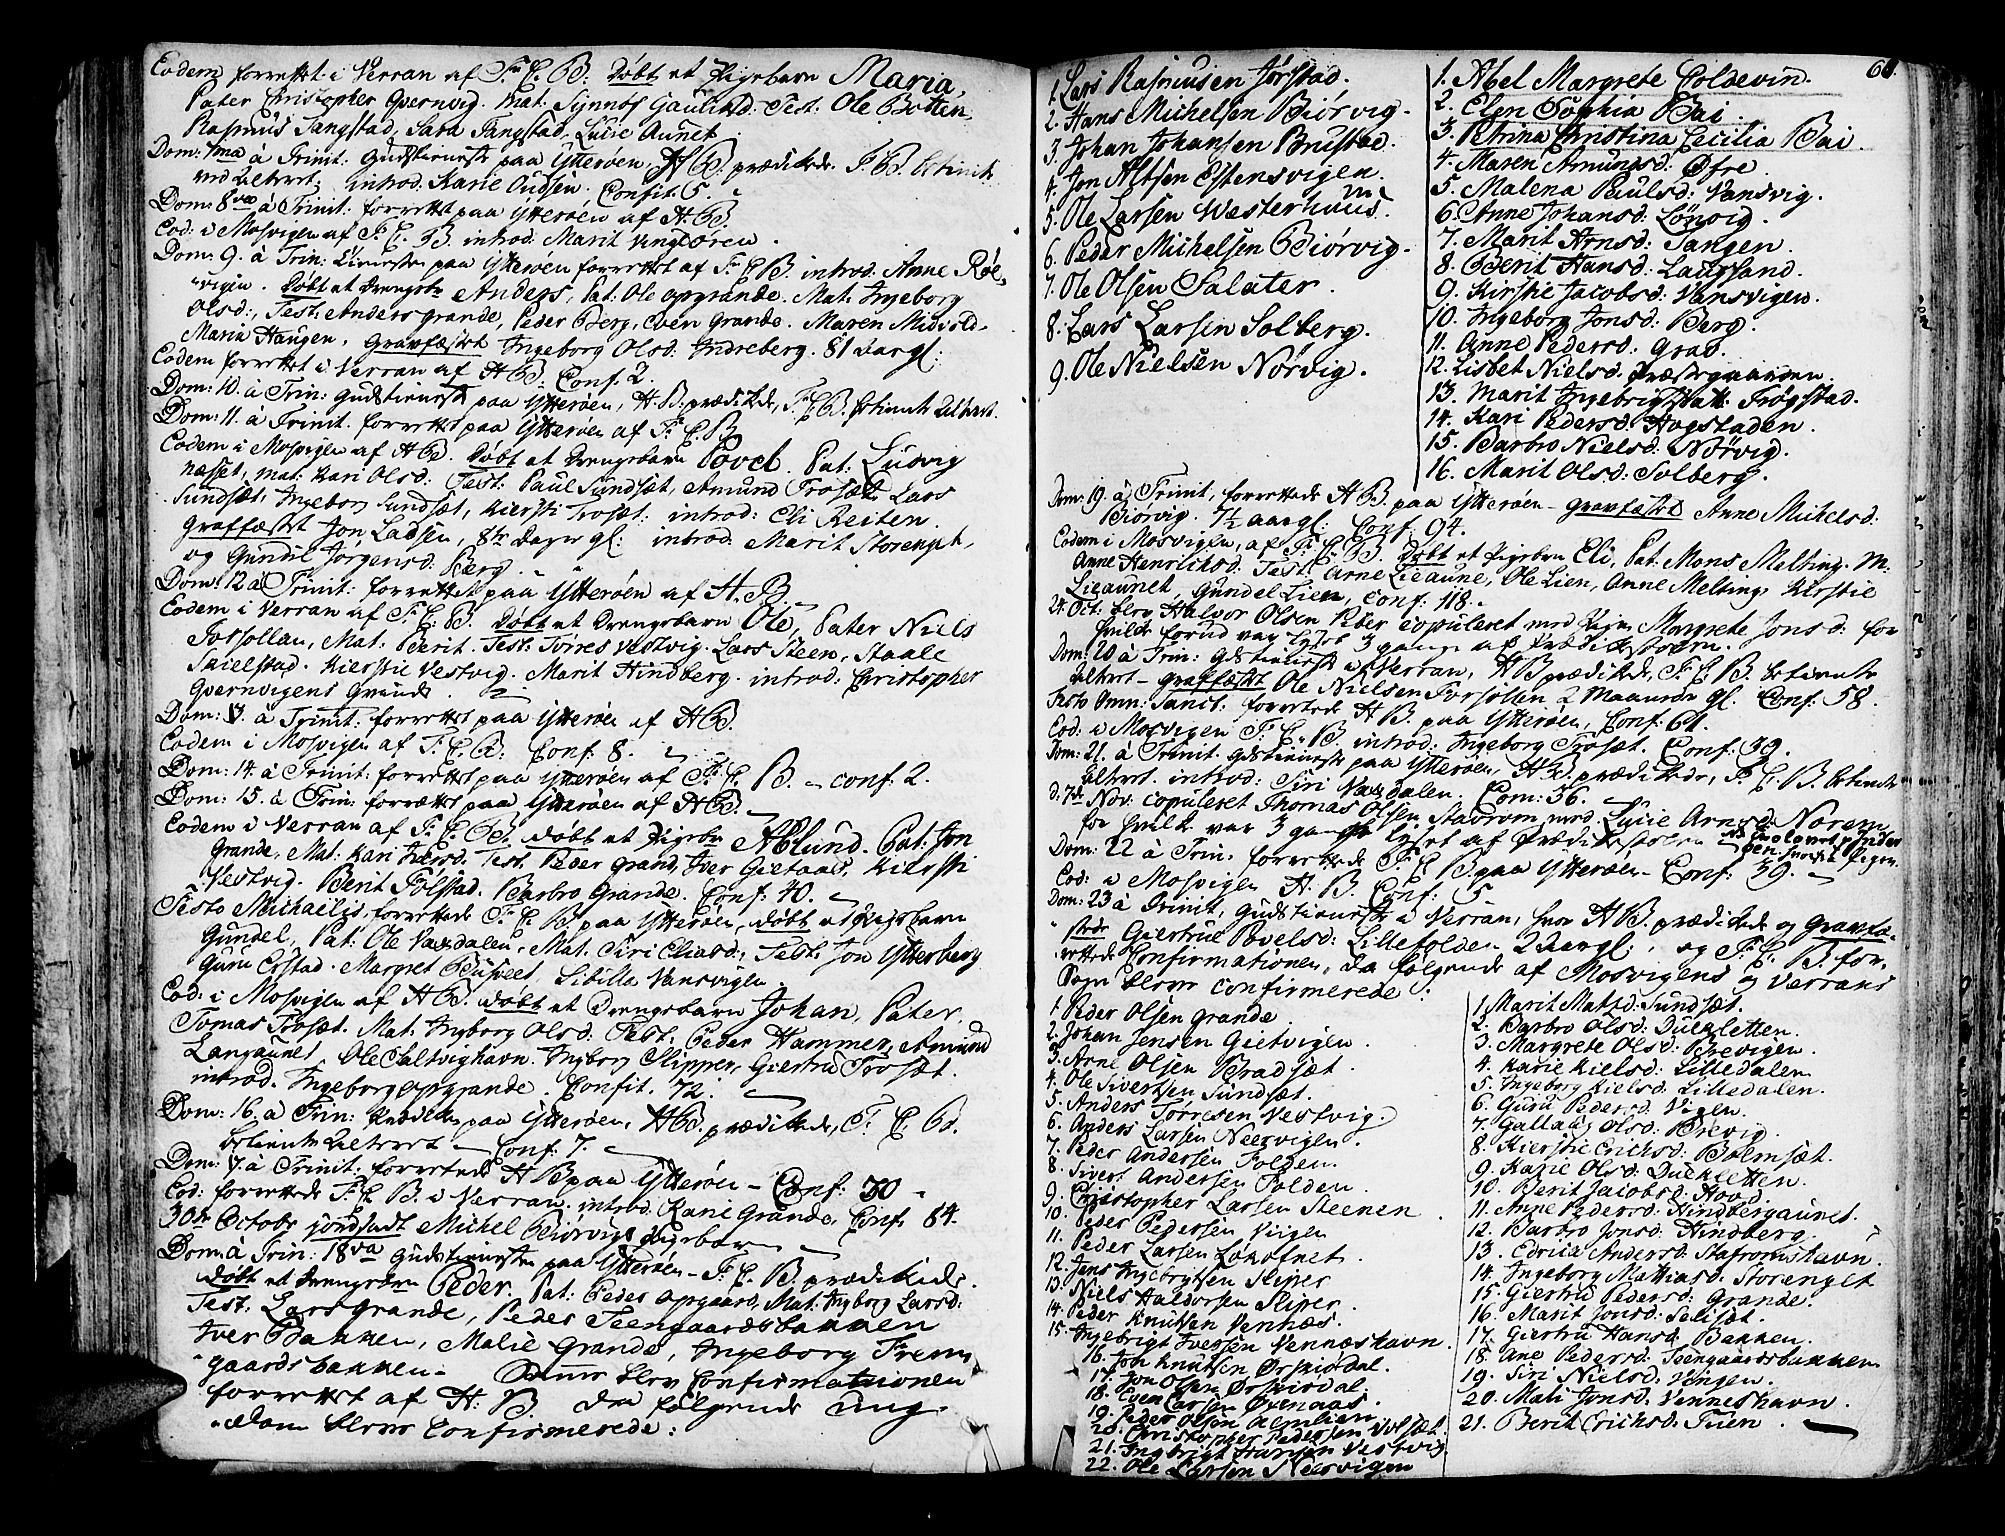 Eodem forrettet i Verran af Fr. C. B. døbt et Pigebarn Maria,
Pater Christopher Qvernvig. Mat: Synnøf Gaulstad. Test: Ole Botten,
Rasmus Tangstad, Sara Tangstad, Lucie Aunet.
Dom: 7ma à Trinit: Gudstienneste paa Ytterøen, HB. prædikede F. C. B. betiente
ved Alteret, introd. Karie Oudsen. Confit 5.
Dom: 8va à Trinit: forrettet paa Ytterøen af HB.
Eod: i Mosvigen af F. C. B. introd. Marit
Dom: 9. à Trin: paa Ytterøen forrettet af Fr. C. B. introd: Anne Røe,
vigen. Døbt et Drengebr Anders, Pat: Ole opgrande. Mat: Ingeborg
Olsd:, Test: Anders grande, Peder Berg, Even Grande. Maren Midvold,
Maria Haugen, Gravfæstet Ingeborg Olsd: Indreberg. 81 Aar gl:
Eodem forrettet i Verran af HB: Conf: 2.
Dom: 10. à Trin: Gudstienneste paa Ytterøen, H. B: prædikede, F. C. B. betiente Alteret.
Dom: 11. à Trinit. forrettet paa Ytterøen af F. C. B.
Eodem i Mosvigen af HB. Døbt et Drengebarn Povel. Pat: Ludvig
næsset, mat: Kari Olsd: Test: Paul Sundsæt, Amund Trosæt, Lars
Sundsæt, Ingeborg Sundsæt, Kiersti Trosæt: introd: Eli Reiten.
Graffæstet Jon Ladsen, Dager gl: introd: Marit Storengit,
og Gundil Jørgensd: Berg.
Dom: 12 à Trinit: forrettet paa Ytterøen af H. B.
Eodem i Verran af F. C. B. Døbt et Drengebarn Ole, Pater Niels
Forsollan, Mat: Berit. Test: Tørres Vestvig. Lars Steen, Staale
Skielstad. Kierstie Vestvig. Marit Hindberg. introd: Christopher
Qvernvigens Grande.
Dom: 13. à Trinit: forrettet paa Ytterøen af HB.
Eodem i Mosvigen af F. C. B: Conf: 8.
Dom: 14. à Trinit: forrettet paa Ytterøen af Fr. C. B. conf: 2.
Dom: 15. à Trin: forrættet paa Ytterøen af HB.
Eodem i Verran af F. C. B. døbt et Pigebr Aslund. Pat: Jon
Grande, Mat: Kari Iversd. Test: Peder Grand, Iver Gietaas, Kiersti
Vestvig. Berit Folstad. Barbro Grande. Conf: 40.
Festo Michaëlis forrettede Fr. C. B. paa Ytterøen, døbt et Pigebarn
Gundel, Pat: Ole Vardalen, Mat. Siri Eliasd: Test: Jon Ytterberg
Guru Erstad. Margret Sibilla Vansvigen.
Eod: i Mosvigen af HB. døbt et Drengebarn Johan, Pater,
Tomas Trosæt. Mat: Ingborg Olsd: Test: Peder Hammer, Amund
Langaunet, Ole Saltvighavn. Ingborg Slipper, Giertru Trosæt.
introd. Ingeborg opgrande. Confit. 72.
Dom: 16. à Trin: paa Ytterøen, HB. prædikede, F. C. B.
betiente Alteret Conf: 7.
Dom: 17. à Trinit: forrettede HB paa Ytterøen Conf: 30
Eod: forrettede F. C. B. i Verran. introd. Karie Grande. Conf: 84.
30te Octobr jordsadt Michel Biørvigs Pigebarn
Dom: à Trin: 18va Gudstienneste paa Ytterøen F. C. B. prædikede.
døbt et Drengebrn Peder. Pat: Peder opgaard, Mat: Ingborg Larsd:
Test: Lars Grande, Peder Teengaardsbakken
Iver Bakken, Malie Grande, Ingeborg Frem
gaardsbakken blev Confirmationen
forrettet af H. B. da følgende Ung
dom bleve Confirmerede:
60.
1. Lars Rasmusen Jørstad.
2. Hans Michelsen Biørvig.
3. Johan Johansen Brustad.
4. Jon Estensvigen.
5. Ole Larsen Wæsterhuus.
6. Peder Michelsen Biørvig.
7. Ole Olsen Salater.
8. Lars Larsen Solberg.
9. Ole Nielsen Nørvig.
1. Abel Margrete Coldevin.
2. Elen Sophia Bai.
3. Petrina Christina Cecilia Bai
4. Maren Amundsd: Øfre.
5. Malena Paulsd: Vansvig.
6. Anne Johansd: Lönvig.
7. Marit Arnsd: Tangen.
8. Berit Hansd: Laugsand.
9. Kirstie Jacobsd: Vansvigen.
10. Ingeborg Jonsd: Berg.
11. Anne Pedersd: Grad.
12. Lisbet Nielsd. Præstegaarden.
13. Marit Ingebrigtsdatt: Trøgstad.
14. Kari Pedersd: Hogstaden.
15. Barbro Nielsd: Nørvig.
16. Marit Olsd: Solberg.
Dom: 19. à Trinit, forrettede HB. paa Ytterøen Gravfæstet Anne Mikelsd:
Biørvig. 7½ aar gl: Conf: 94.
Eodem i Mosvigen, af Fr. C. B. Døbt et Pigebrn Eli, Pat. Mons Melting. M:
Anne Henrichsd: Test: Arne Lieaune, Ole Lien, Anne Melting, Kirstie
Lieaunet, Gundel Lien, Conf: 118.
24. Oct: blev Halvor Olsen copuleret med Pigen Margrete Jonsd: for
hvilke forud var lyst 3 gange af Prædikestolen.
Dom: 20 à Trin: Gdstienneste i Verran, HB prædikede, F. C. B. betiente
Alteret graffæstet Ole Nielsen Forsollen 2 Maaneder gl. Conf: 58.
Festo Omn: Sanct: forrettede HB. paa Ytterøen, Conf: 61.
Eod: i Mosvigen F. C. B introd: Ingeborg Trosæt. Conf: 39.
Dom: 21. à Trinit. Gdstienneste paa Ytterøen HB. prædikede, F. C. B. betiente
Alteret. introd: Siri Vardalen. Com: 36.
d: 7de Nov: copuleret Thomas Olsen Stavrom med Lucie Arnsd Norem
for hvilke var 3 gange lyst af Prædikestolen
Dom: 22 à Trin: forrettede F. C. B paa Ytterøen Conf: 39.
Eod: i Mosvigen H. B. Conf: 5
Dom: 23 à Trinit, Gudstienneste i Verran, hvor HB. prædikede og Gravfæ-
stede Giertrue Povelsd: Lillefolden 2 Aar gl:, og F. C. B. for
rettede Confirmationen, da følgende af Mosvigens og Verrans
Sogn bleve Confirmerede:
1. Peder Olsen Grande.
2. Johan Jensen Gietvigen.
3. Arne Olsen Bradsæt.
4. Ole Sivertsen Sundsæt.
5. Anders Tørresen Vestvig.
6. Anders Larsen Neervigen.
7. Peder Andersen Folden.
8. Sivert Andersen Folden.
9. Christopher Larsen Steenen
10. Peder Pedersen Viigen
11. Peder Larsen Lokofnet.
12. Jens Ingebrigtsen Sliper
13. Niels Haldorsen Sliper.
14. Peder Knutsen Venhæs.
15. Ingebrigt Iversen Vennæshavn.
16. Jon Knutsen Ørskiordal.
17. Jon Olsen Ørskiordal.
18. Even Larsen Øvenaas.
19. Peder Olsen Aemlien.
20. Christopher Pedersen Volsæt.
21. Ingbrigt Hansen Vestvig
22. Ole Larsen Neervigen
1. Marit Matsd: Sundsæt.
2. Barbro Olsd: Duckletten.
3. Margrete Olsd: Brevigen.
4. Karie Kielsd: Lilledalen
5. Ingeborg Kielsd: Lilledalen.
6. Guru Pedersd: Vigen.
7. Gallaug Olsd: Brevig.
8. Kierstie Erichsd: Bolmsæt.
9. Karie Olsd: Duckletten.
10. Berit Jacobsd: Hovd.
11. Anne Pedersd: Hindbergaunet.
12. Barbro Jonsd: Hindberg.
13. Edricia Andersd: Stafromshavn.
14. Ingeborg Mathiasd: Storenget
15. Giertru Pedersd: Grande.
16. Marit Jonsd: Selisæt.
17. Giertru Hansd: Bakken.
18. Ane Pedersd: Teengaardsbakken
19. Siri Nielsd: Vengen.
20. Mali Jonsd: Venneshavn.
21. Berit Erichsd: Tuen.